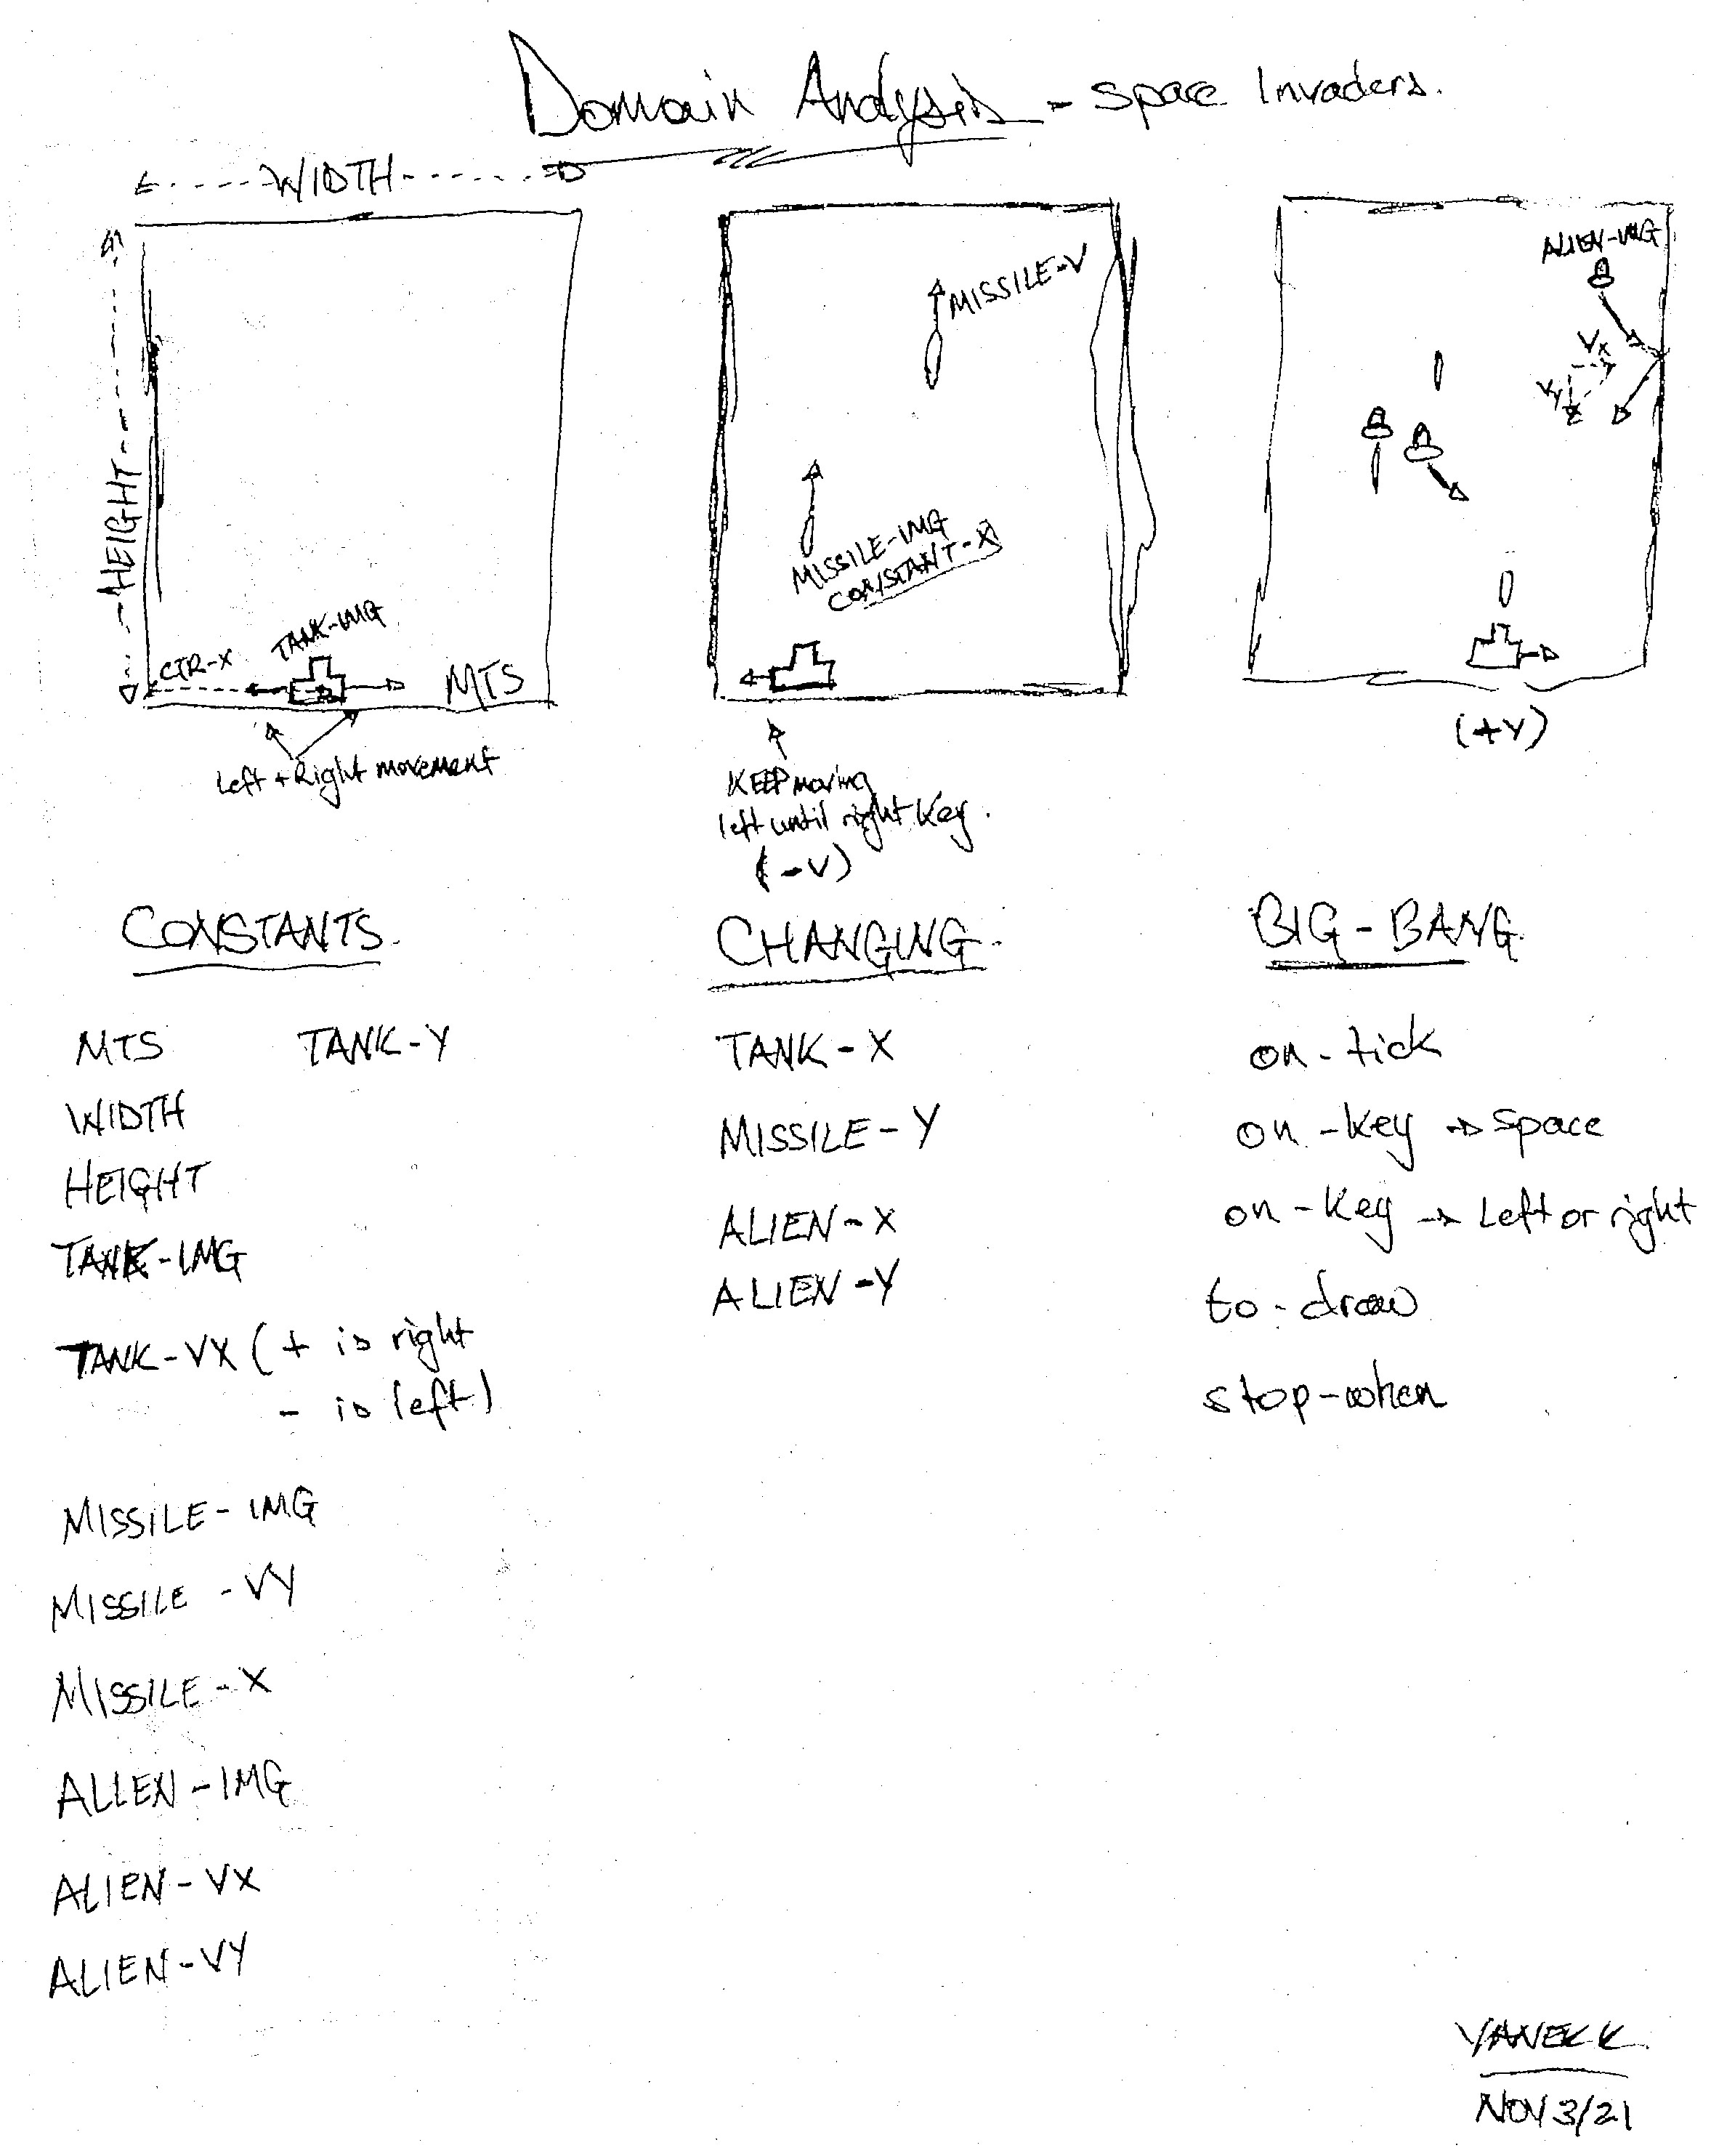 Domain Analysis - Space Invaders.
WIDTH
HEIGHT
CTR-X
TANK-IMG
MTS
Left + Right movement
MISSILE-V
MISSILE-IMG
CONSTANT-X
KEEP moving
left until right key.
(-V)
ALIEN-IMG
Vx
Vy
(+V)
CONSTANTS.
MTS TANK-Y
WIDTH
HEIGHT
TANK-IMG
TANK-VX (+ is right
- is left)
MISSILE-IMG
MISSILE-VY
MISSILE-X
ALIEN-IMG
ALIEN-VX
ALIEN-VY
CHANGING.
TANK-X
MISSILE-Y
ALIEN-X
ALIEN-Y
BIG-BANG
on-tick
on-key → space
on-key → Left or right
to-draw
stop-when
YANEKK
NOV 3/21